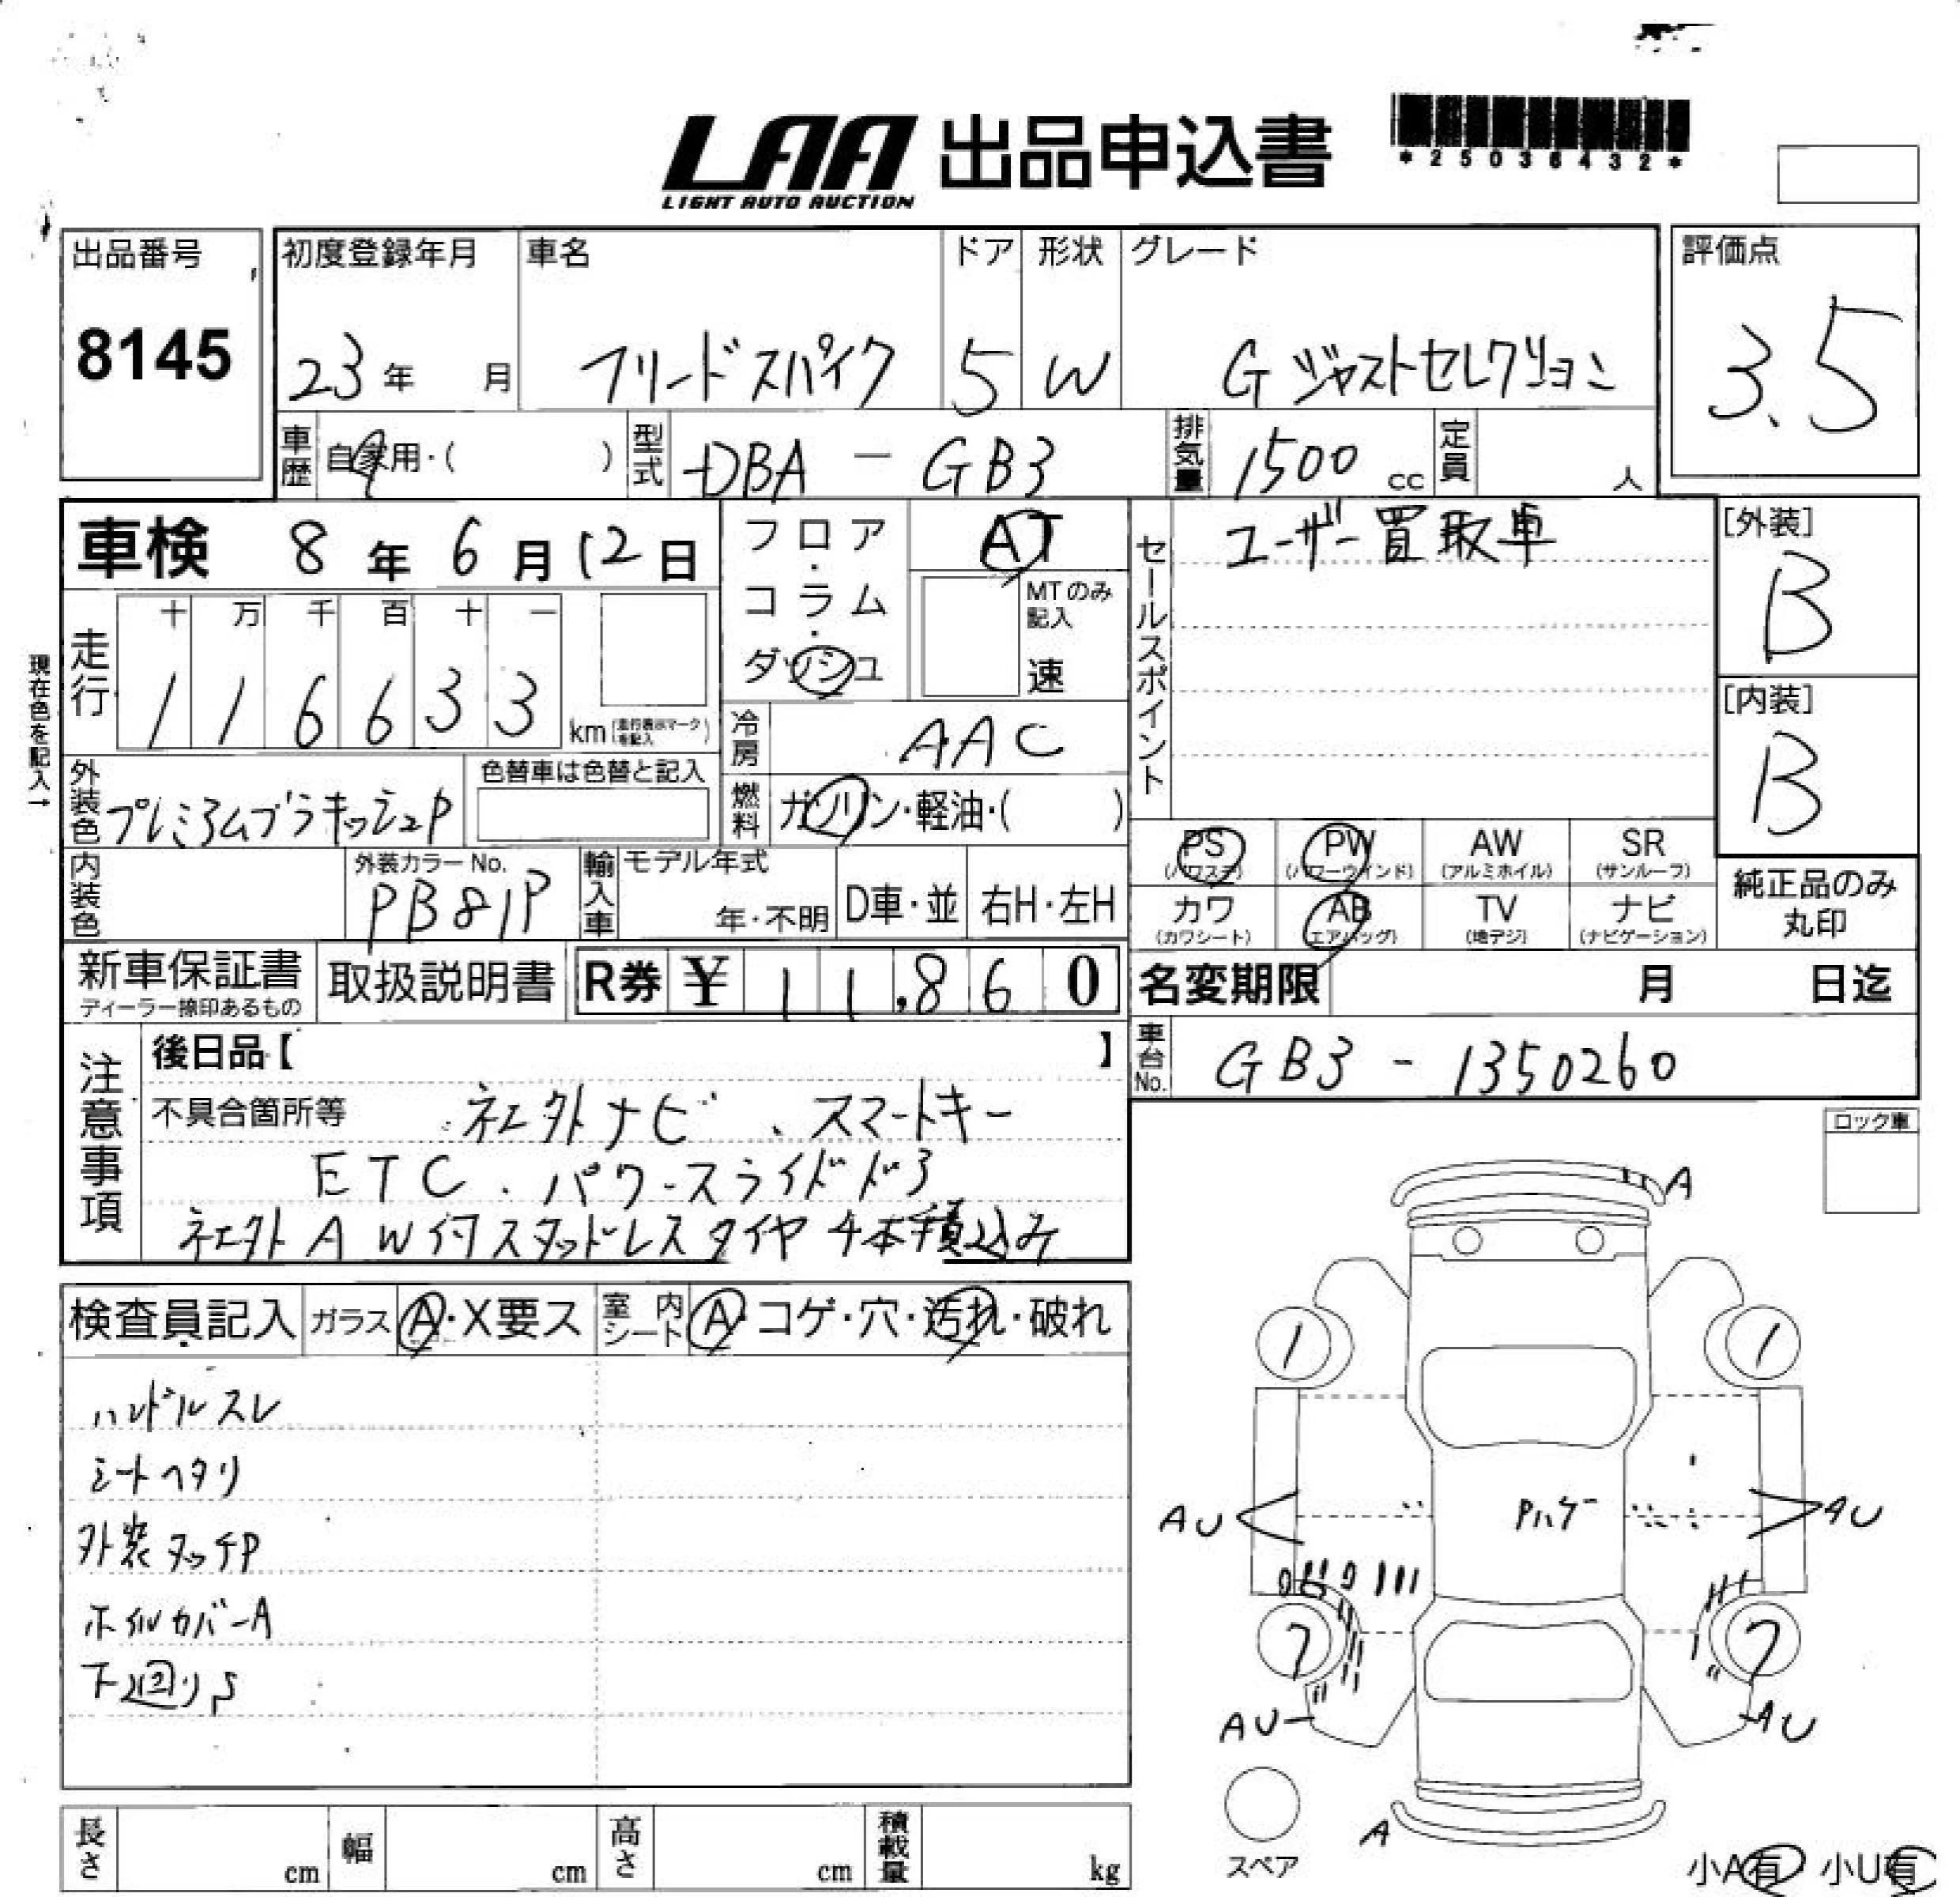 LAA 出品申込書
LIGHT AUTO AUCTION
*25036432*
出品番号
8145
初度登録年月
23年 月
車名
フリードスパイク
ドア
5
形状
W
グレード
Gジャストセレクション
評価点
3.5
車歴 自家用・( )
型式 DBA - GB3
排気量 1500 cc
定員 人
車検 8年6月12日
フロア・コラム・ダッシュ
AT
MTのみ記入
速
セールスポイント
ユーザー買取車
[外装]
B
[内装]
B
現在色を記入→
走行
十 万 千 百 十 一
1 1 6 6 3 3 km (走行表示マークを記入)
冷房 AAC
燃料 ガソリン・軽油・( )
外装色 プレミアムブラキッシュP
色替車は色替と記入
内装色
外装カラーNo.
PB81P
輸入車
モデル年式
年・不明
D車・並
右H・左H
PS (パワステ)
PW (パワーウインド)
AW (アルミホイル)
SR (サンルーフ)
カワ (カワシート)
AB (エアバッグ)
TV (地デジ)
ナビ (ナビゲーション)
純正品のみ丸印
新車保証書
ディーラー捺印あるもの
取扱説明書
R券 ¥ 11,860
名変期限 月 日迄
車台No. GB3 - 1350260
注意事項
後日品【 】
不具合箇所等 社外ナビ、スマートキー
ETC.パワースライドドア
社外AW付スタッドレスタイヤ4本積込み
ロック車
検査員記入
ガラス A・X要ス
室内シート A・コゲ・穴・汚れ・破れ
ハンドルスレ
シートヘタリ
外装タッチP
ホイルカバーA
下回りS
A
1 1
AU Pハゲ AU
7 7
AU AU
A
スペア
小A有 小U有
長さ cm
幅 cm
高さ cm
積載量 kg